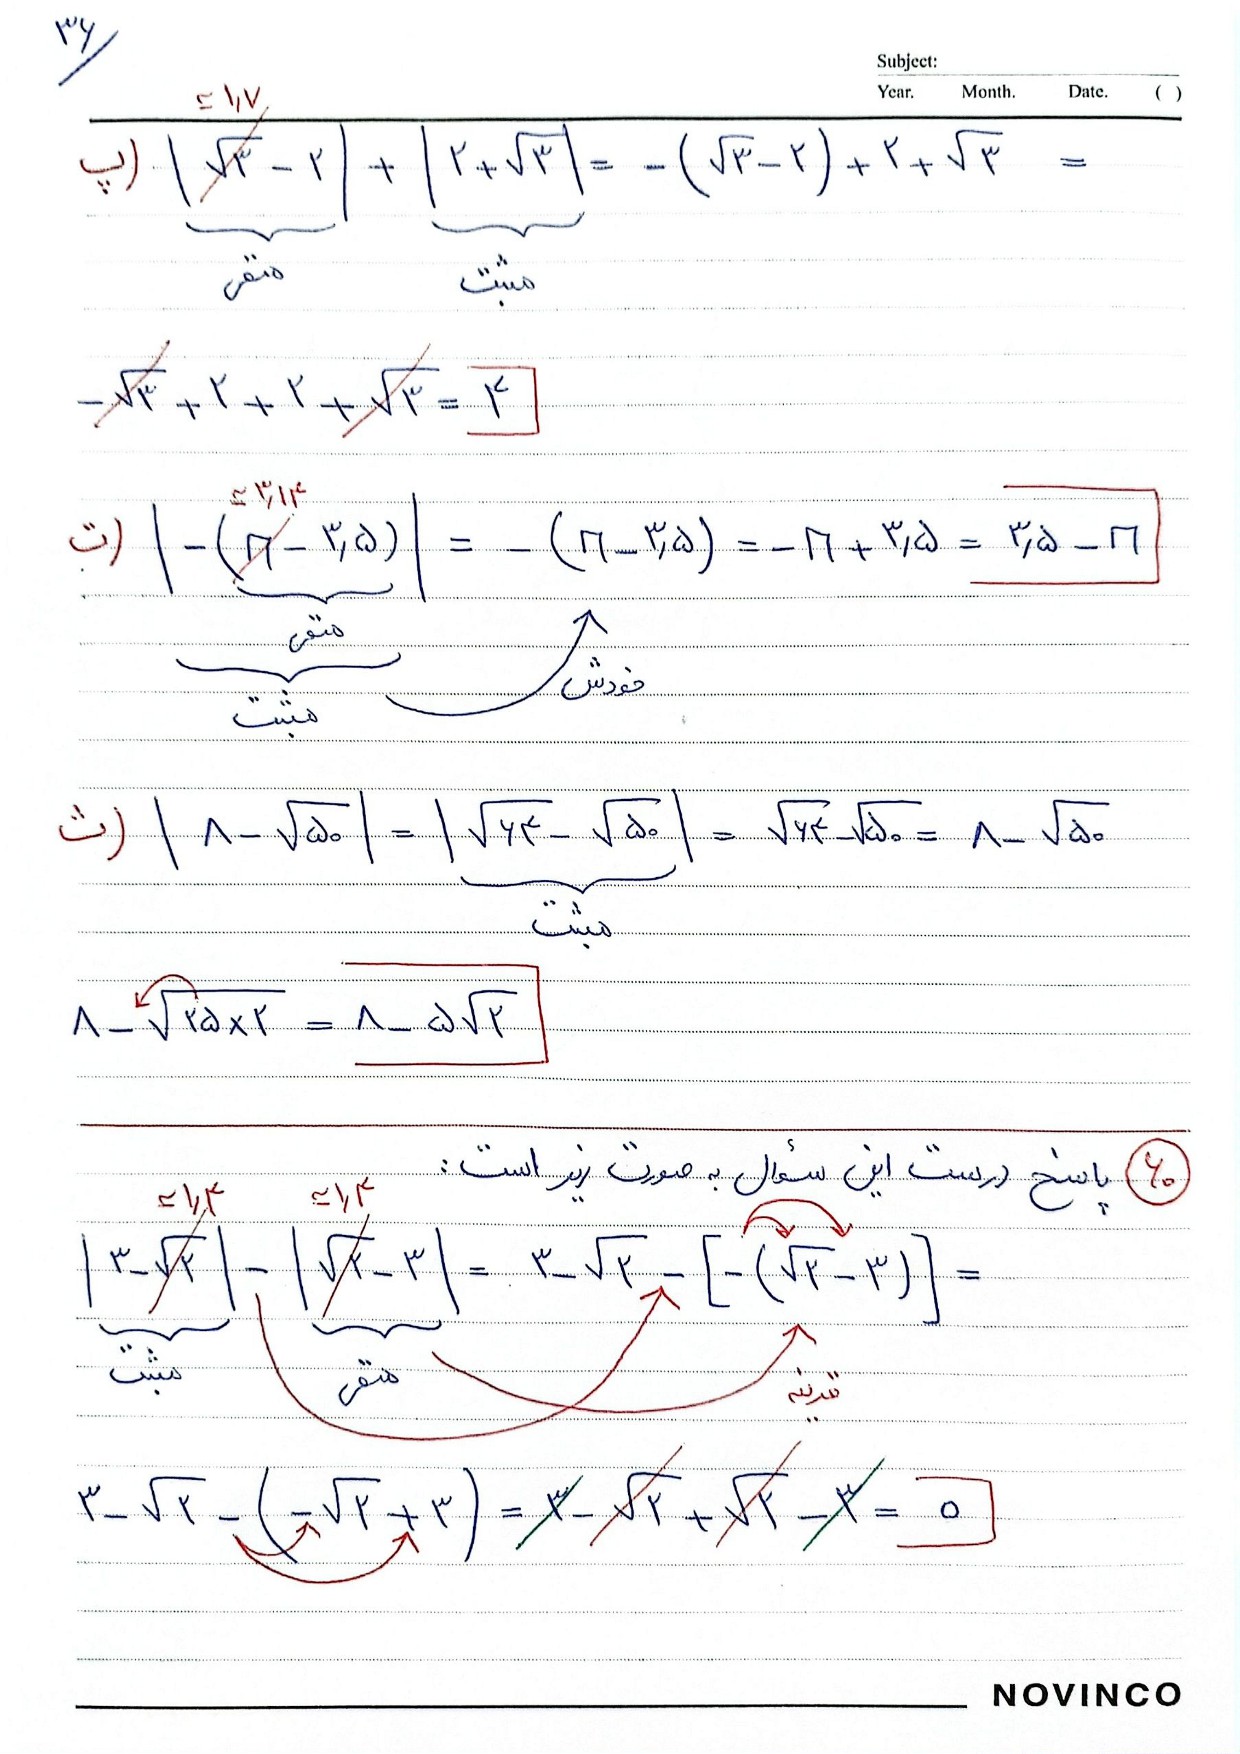 ۳۶
Subject:
Year. Month. Date. ( )
≃ ۱٫۷
پ) |√۳ - ۲| + |۲ + √۳| = -(√۳ - ۲) + ۲ + √۳ =
منفی مثبت
-√۳ + ۲ + ۲ + √۳ = ۴
≃ ۳٫۱۴
ت) |-(π - ۳٫۵)| = -(π - ۳٫۵) = -π + ۳٫۵ = ۳٫۵ - π
منفی
مثبت خودش
ث) |۸ - √۵۰| = |√۶۴ - √۵۰| = √۶۴ - √۵۰ = ۸ - √۵۰
مثبت
۸ - √۲۵×۲ = ۸ - ۵√۲
۶۰ پاسخ درست این سؤال به صورت زیر است:
≃ ۱٫۴ ≃ ۱٫۴
|۳ - √۲| - |√۲ - ۳| = ۳ - √۲ - [-(√۲ - ۳)] =
مثبت منفی قرینه
۳ - √۲ - (-√۲ + ۳) = ۳ - √۲ + √۲ - ۳ = ۰
NOVINCO